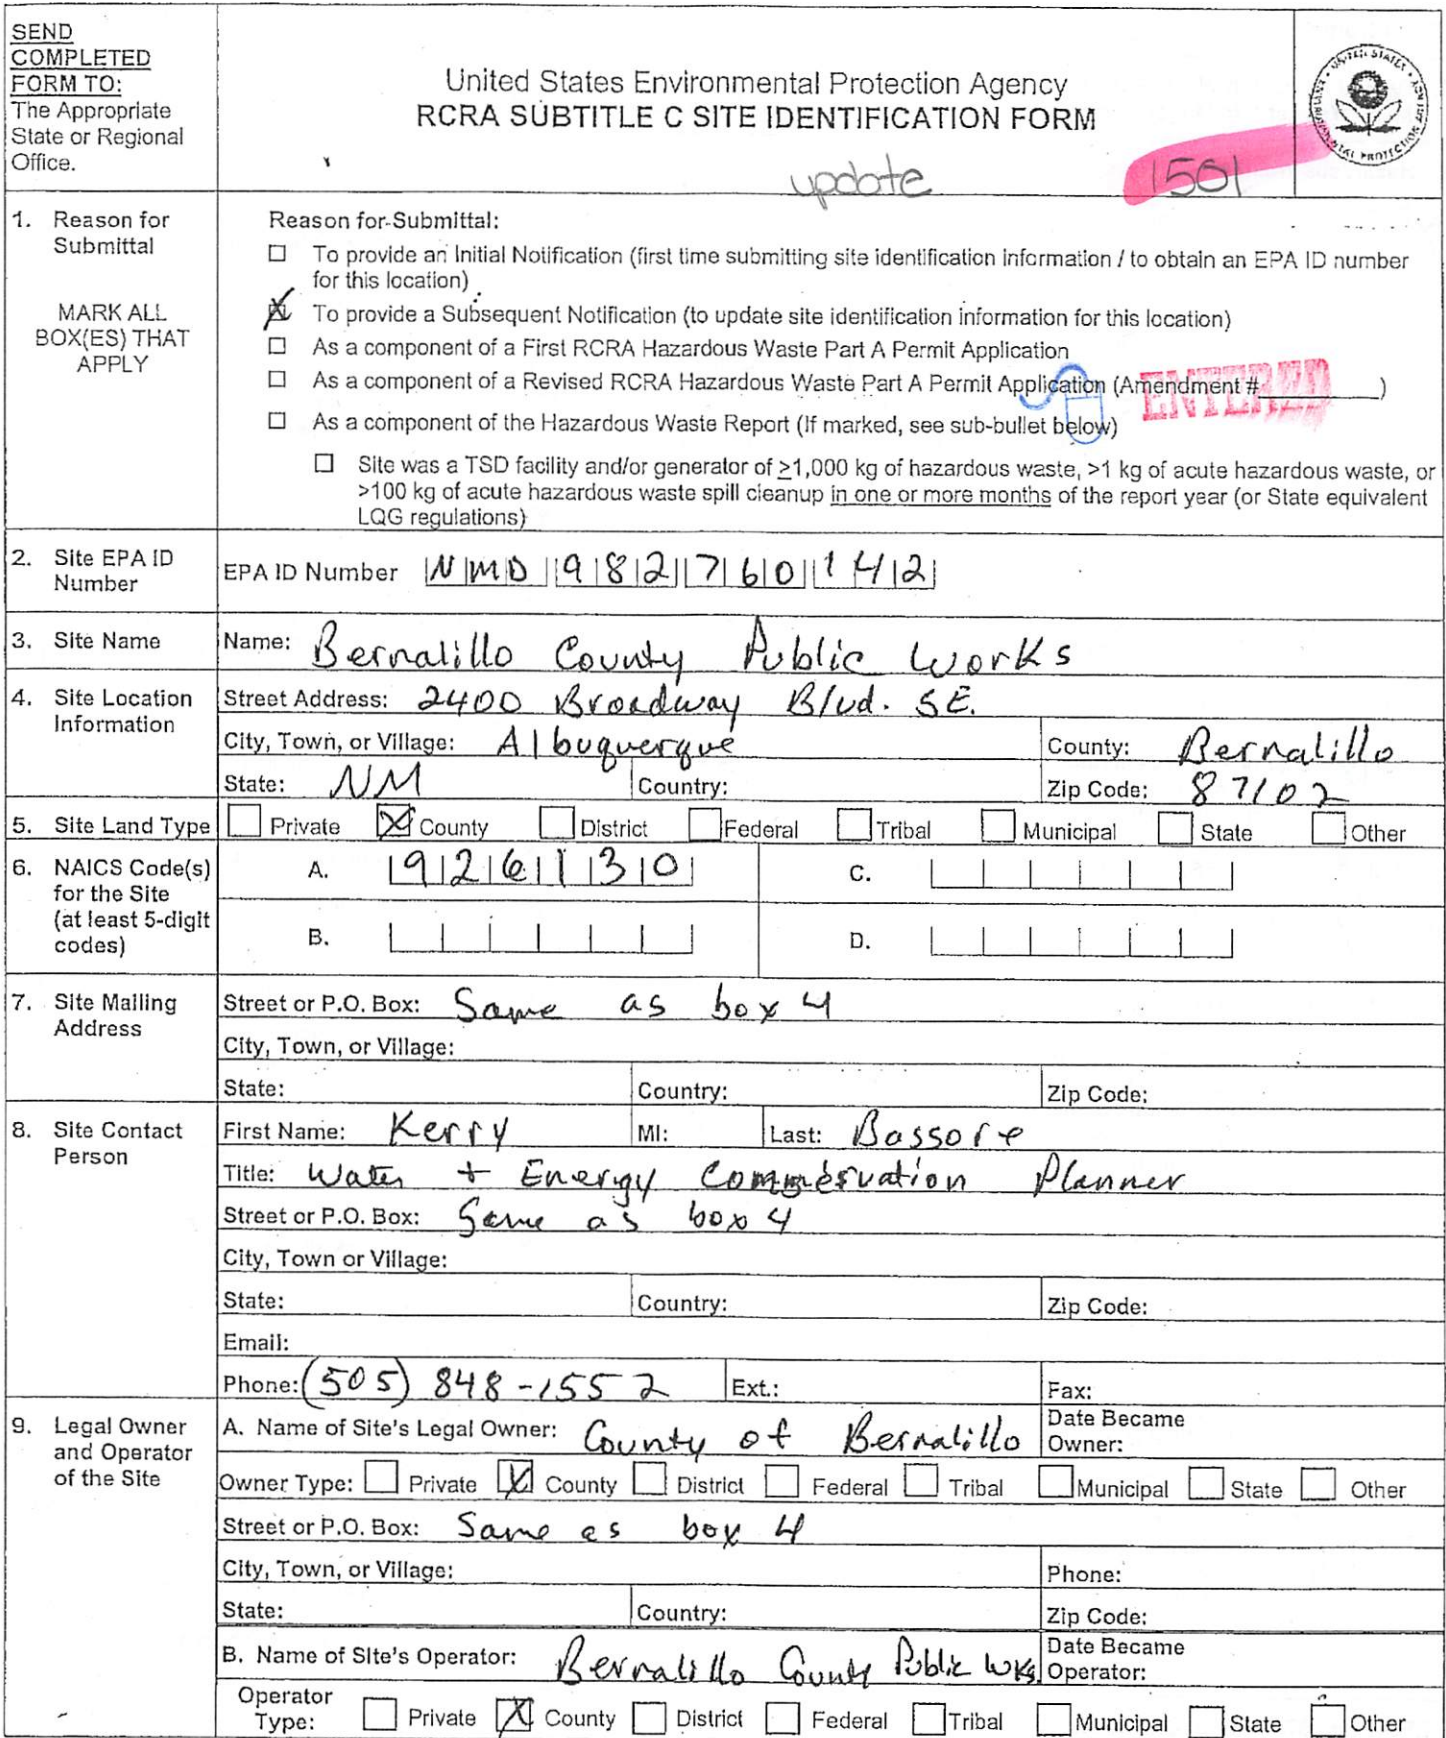 SEND
COMPLETED
FORM TO:
The Appropriate
State or Regional
Office.
United States Environmental Protection Agency
RCRA SUBTITLE C SITE IDENTIFICATION FORM
update 1501
UNITED STATES ENVIRONMENTAL PROTECTION AGENCY
1. Reason for
Submittal
MARK ALL
BOX(ES) THAT
APPLY
Reason for Submittal:
☐ To provide an Initial Notification (first time submitting site identification information / to obtain an EPA ID number
for this location)
☒ To provide a Subsequent Notification (to update site identification information for this location)
☐ As a component of a First RCRA Hazardous Waste Part A Permit Application
☐ As a component of a Revised RCRA Hazardous Waste Part A Permit Application (Amendment #________)
ENTERED
☐ As a component of the Hazardous Waste Report (If marked, see sub-bullet below)
☐ Site was a TSD facility and/or generator of ≥1,000 kg of hazardous waste, >1 kg of acute hazardous waste, or
>100 kg of acute hazardous waste spill cleanup in one or more months of the report year (or State equivalent
LQG regulations)
2. Site EPA ID
Number
EPA ID Number NMD982760142
3. Site Name
Name: Bernalillo County Public Works
4. Site Location
Information
Street Address: 2400 Broadway Blvd. SE.
City, Town, or Village: Albuquerque County: Bernalillo
State: NM Country: Zip Code: 87102
5. Site Land Type ☐ Private ☒ County ☐ District ☐ Federal ☐ Tribal ☐ Municipal ☐ State ☐ Other
6. NAICS Code(s)
for the Site
(at least 5-digit
codes)
A. 926130 C.
B. D.
7. Site Mailing
Address
Street or P.O. Box: Same as box 4
City, Town, or Village:
State: Country: Zip Code:
8. Site Contact
Person
First Name: Kerry MI: Last: Bassore
Title: Water + Energy Planner
Street or P.O. Box: Same as box 4
City, Town or Village:
State: Country: Zip Code:
Email:
Phone: (505) 848-1552 Ext.: Fax:
9. Legal Owner
and Operator
of the Site
A. Name of Site's Legal Owner: County of Bernalillo Date Became
Owner:
Owner Type: ☐ Private ☒ County ☐ District ☐ Federal ☐ Tribal ☐ Municipal ☐ State ☐ Other
Street or P.O. Box: Same as box 4
City, Town, or Village: Phone:
State: Country: Zip Code:
B. Name of Site's Operator: Bernalillo County Public Wks. Date Became
Operator:
Operator
Type: ☐ Private ☒ County ☐ District ☐ Federal ☐ Tribal ☐ Municipal ☐ State ☐ Other